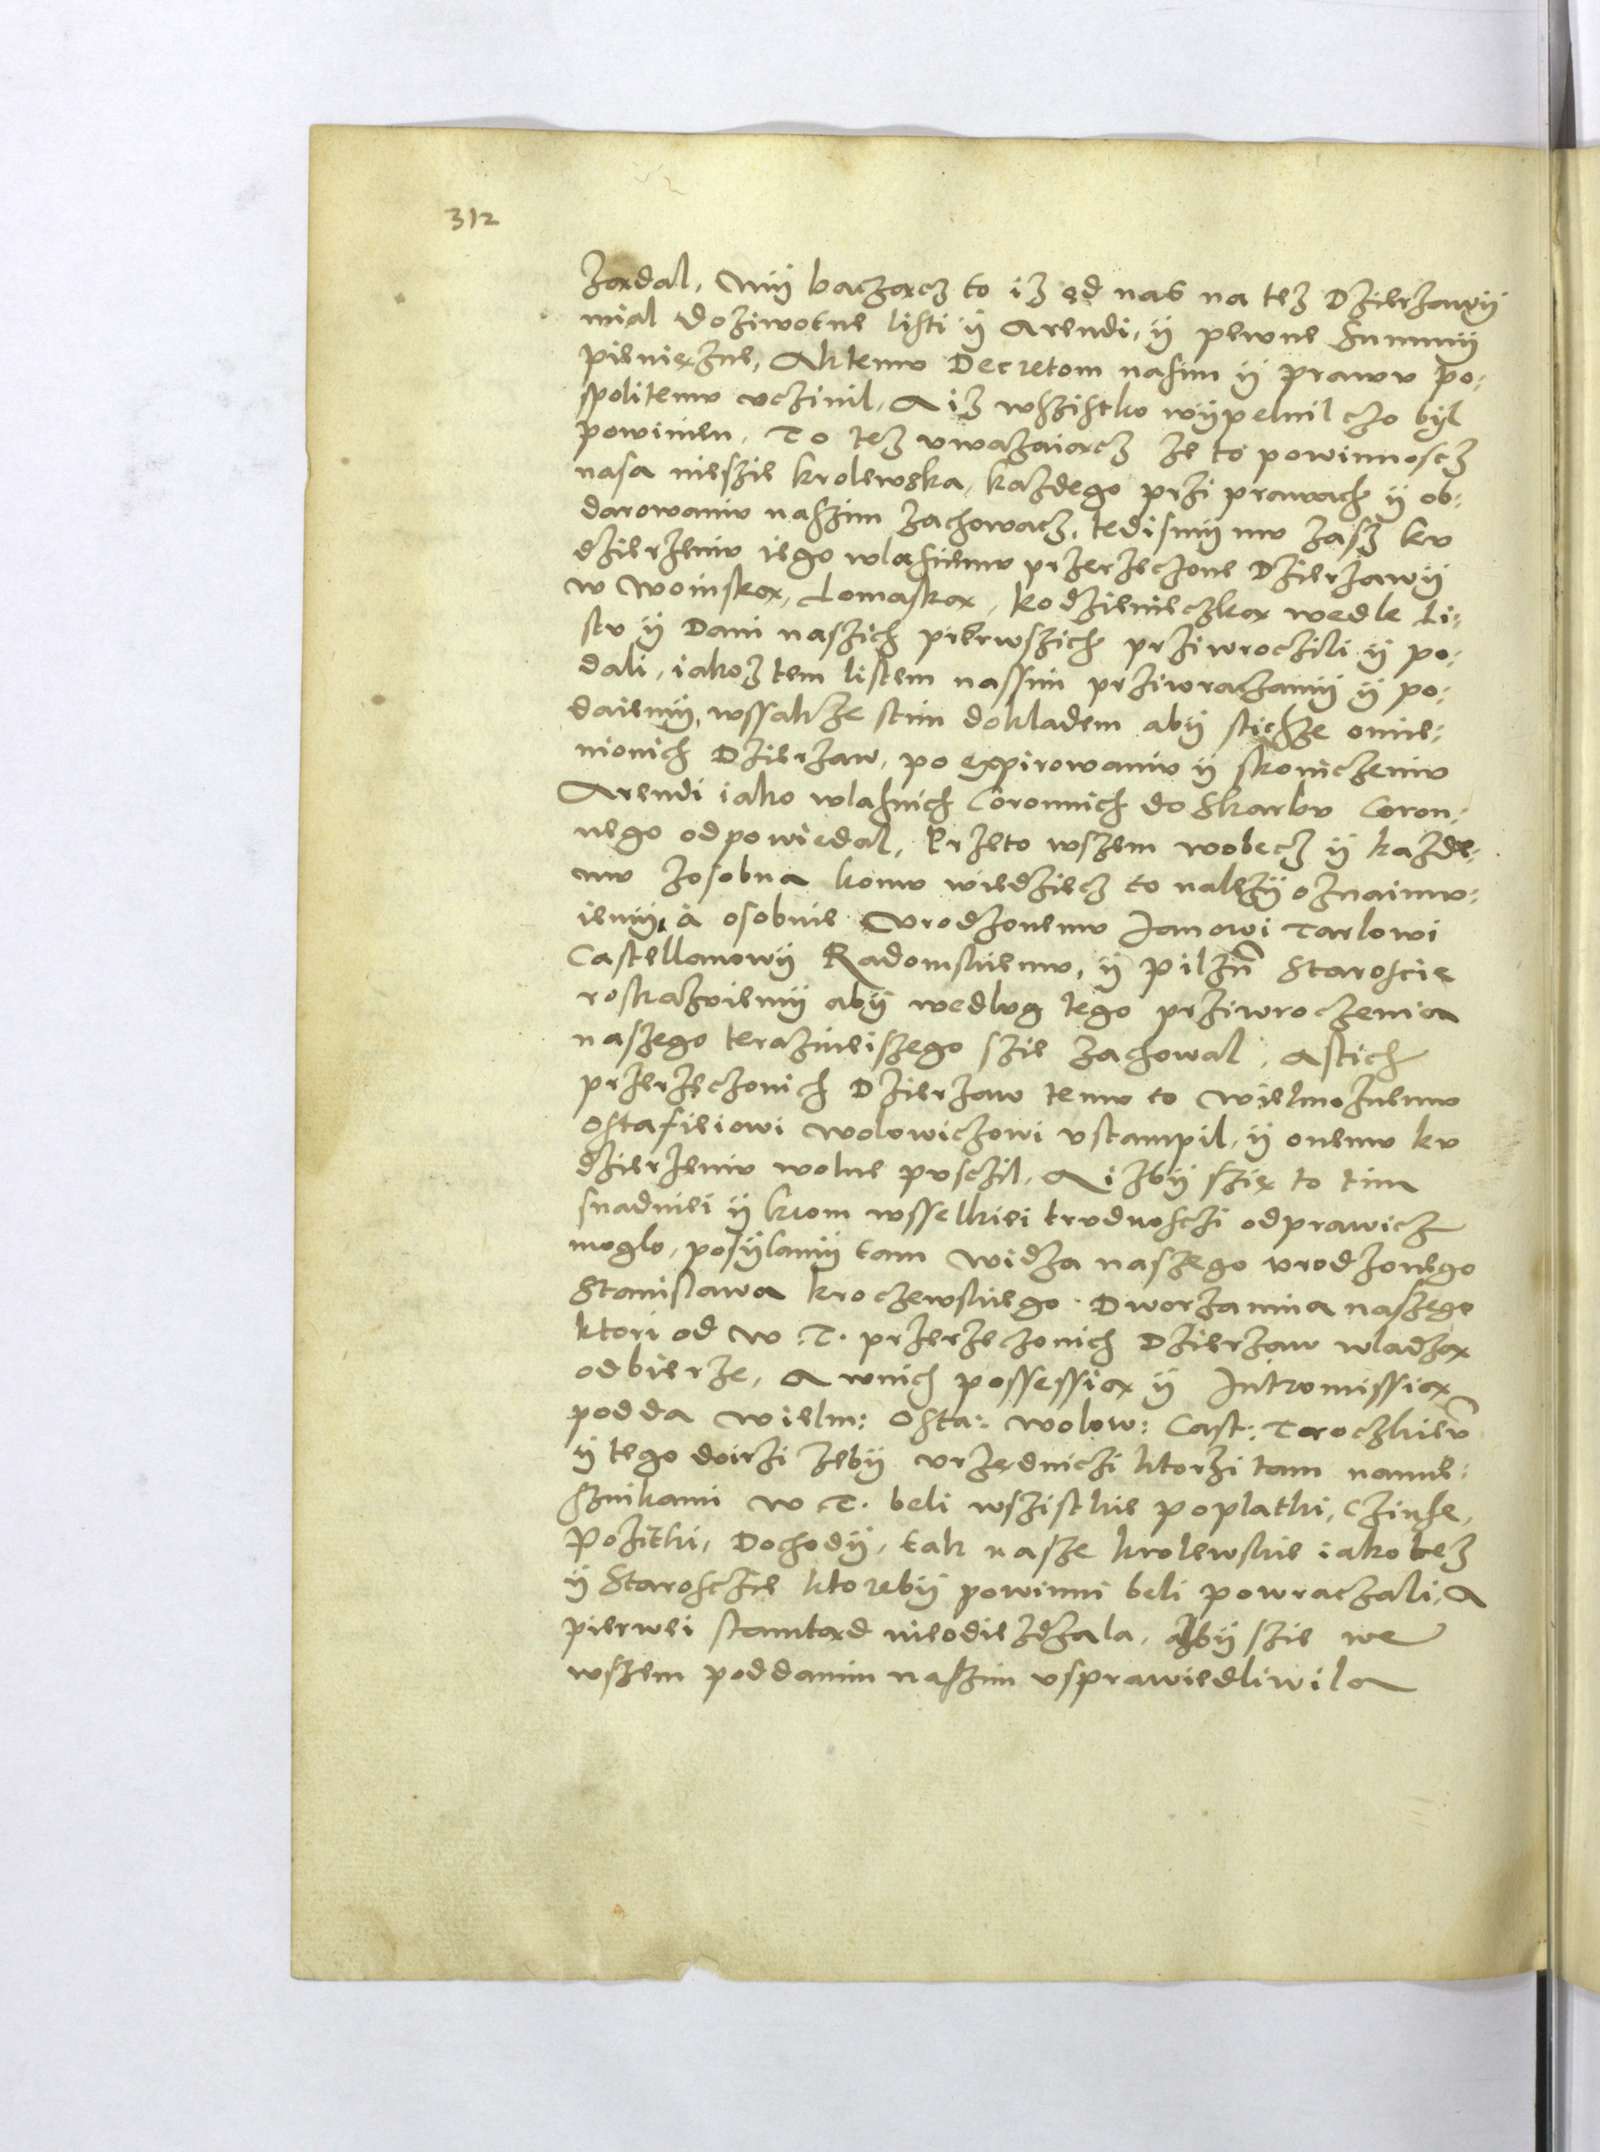 312
żądal, My bacząncz to iz od nas na tez Dzierzawÿ
mial doziwotne listi ÿ Arendi, ÿ pewne Summÿ
pieniężne, Aktemu Decretom nasim ÿ prawu po:
spolitemu uczinil, A iz wszistko wÿpelnil czo bÿl
powinien. To tez uwazaiącz ze to powinnoscz
nasa niesie krolewska, kazdego przi prawach ÿ ob:
darowaniu naszim zachowacz, tedismÿ mu zasz ku
dzierzeniu iego wlasnemu przerzeczone Dzierzawÿ
w Woinską, Lomaską, Kodzienieczką wedle Li:
stu ÿ Dani naszich pierwszich prziwroczili ÿ po:
dali, iakoz tem listem nassim prziwraczamÿ ÿ po:
daiemÿ, wssakze stim dokladem abÿ stichze omie:
nionich Dzierzaw, po expirowaniu ÿ skonczeniu
Arendi iako wlasnich Coronnich do Skarbu Coron:
nego odpowiedal, Przeto wszem wobecz ÿ kazde:
mu zosobna komu wiedziecz to nalezÿ oznaimu:
iemÿ, a osobnie Urodzonemu Janowi Tarlowi
Castellanowÿ Radomskiemu, ÿ Pilzn Staroscie
roskazuiemÿ abÿ wedlug tego prziwroczenia
naszego teraznieiszego szie zachowal, A stich
przerzeczonich Dzierzaw temu to Wielmoznemu
Ostafieiowi Wolowiczowi ustampil, ÿ onemu ku
dzierzeniu wolne pusczil, A izbÿ szię to tim
snadniei ÿ krom wsselkiei trudnosczi odprawicz
moglo, posÿlamÿ tam Widza naszego urodzonego
Stanislawa Kroczewskiego Dworzanina naszego
ktori od W. T. przerzeczonich Dzierzaw wladzą
odbierze, A wnich possessią ÿ Intromissią
podda Wielm: Osta: Wolow: Cast: Troczkieu
ÿ tego doirzi zebÿ urzędniczi ktorzi tam namie:
sznikami W. T. beli wszistkie poplatki, czinsze,
Pozitki, Dochodÿ, tak nasze krolewskie iako tez
ÿ Starosczie ktorebÿ powinni beli powraczali, A
pierwei stamtąd nieodiezdzala, Azbÿ szie we
wszem poddanim naszim usprawiedliwila